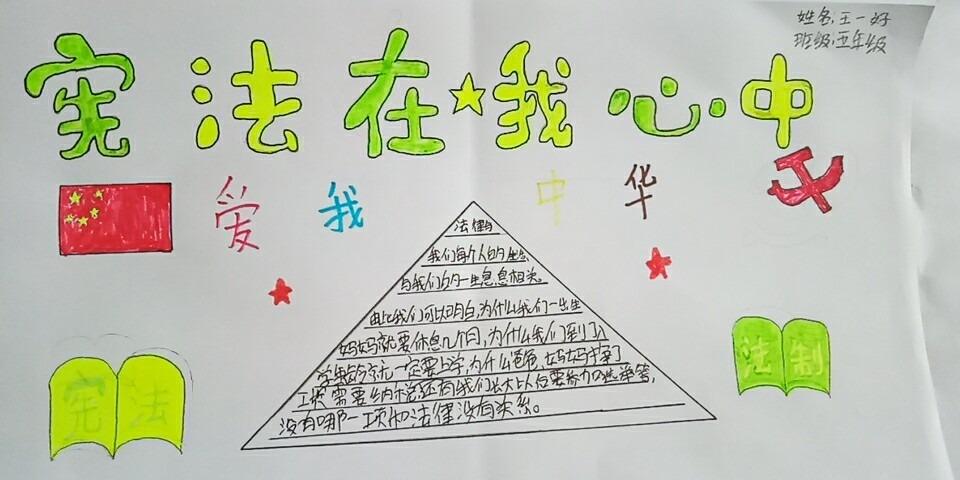 姓名：王一好
班级：五年级
宪法在我心中
爱我中华
法律与
我们每个人的生活
与我们的一生息息相关
由此我们可以明白，为什么我们一出生
妈妈就要休息几个月，为什么我们到了入
学年龄就一定要上学，为什么爸爸、妈妈发了
工资需要纳税，还有我们长大以后要参加选举等，
没有哪一项和法律没有关系。
宪法
法制